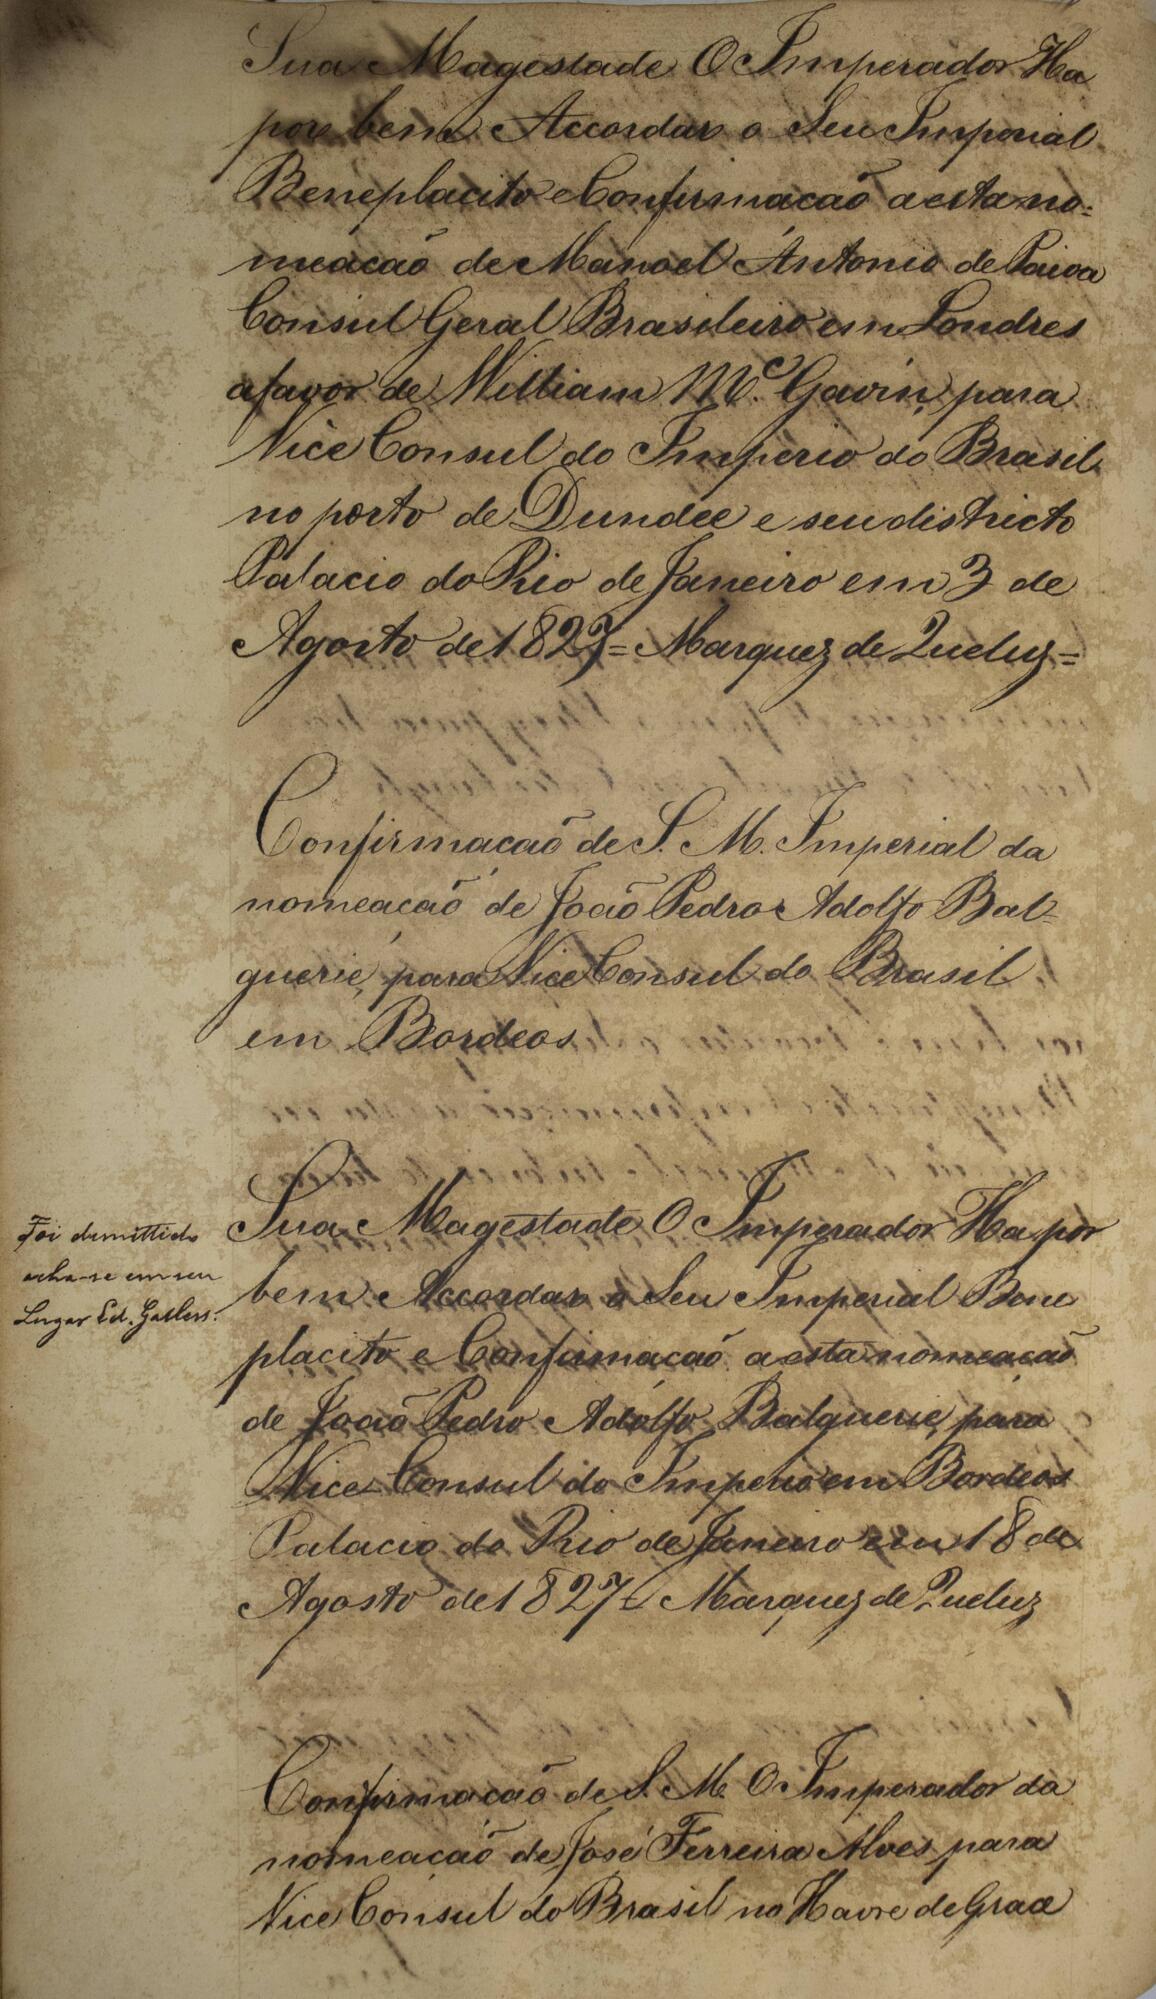 Sua Magestade O Imperador Ha
por bem Accordar o Seu Imperial
Beneplacito e Confirmacaõ a esta no=
meacaõ de Manoel Antonio de Paiva
Consul Geral Brasileiro em Londres
a favor de William Mc. Gavin, para
Vice Consul do Imperio do Brasil
no porto de Dundee e seu districto
Palacio do Rio de Janeiro em 3 de
Agosto de 1827= Marquez de Queluz=
Confirmaçaõ de S. M. Imperial da
nomeaçaõ de Joaõ Pedro Adolfo Bal=
guerie, para Vice Consul do Brasil
em Bordeos
Sua Magestade O Imperador Ha por
bem Accordar o Seu Imperial Bene
placito e Confirmaçaõ a esta nomeaçaõ
de Joaõ Pedro Adolfo Balguerie, para
Vice Consul do Imperio em Bordeos
Palacio do Rio de Janeiro em 18 de
Agosto de 1827= Marquez de Queluz
Foi dimittido
acha-se em seu
Lugar Ed.
Confirmaçaõ de S. M. O Imperador da
nomeaçaõ de José Ferreira Alves para
Vice Consul do Brasil no Havre de Grace